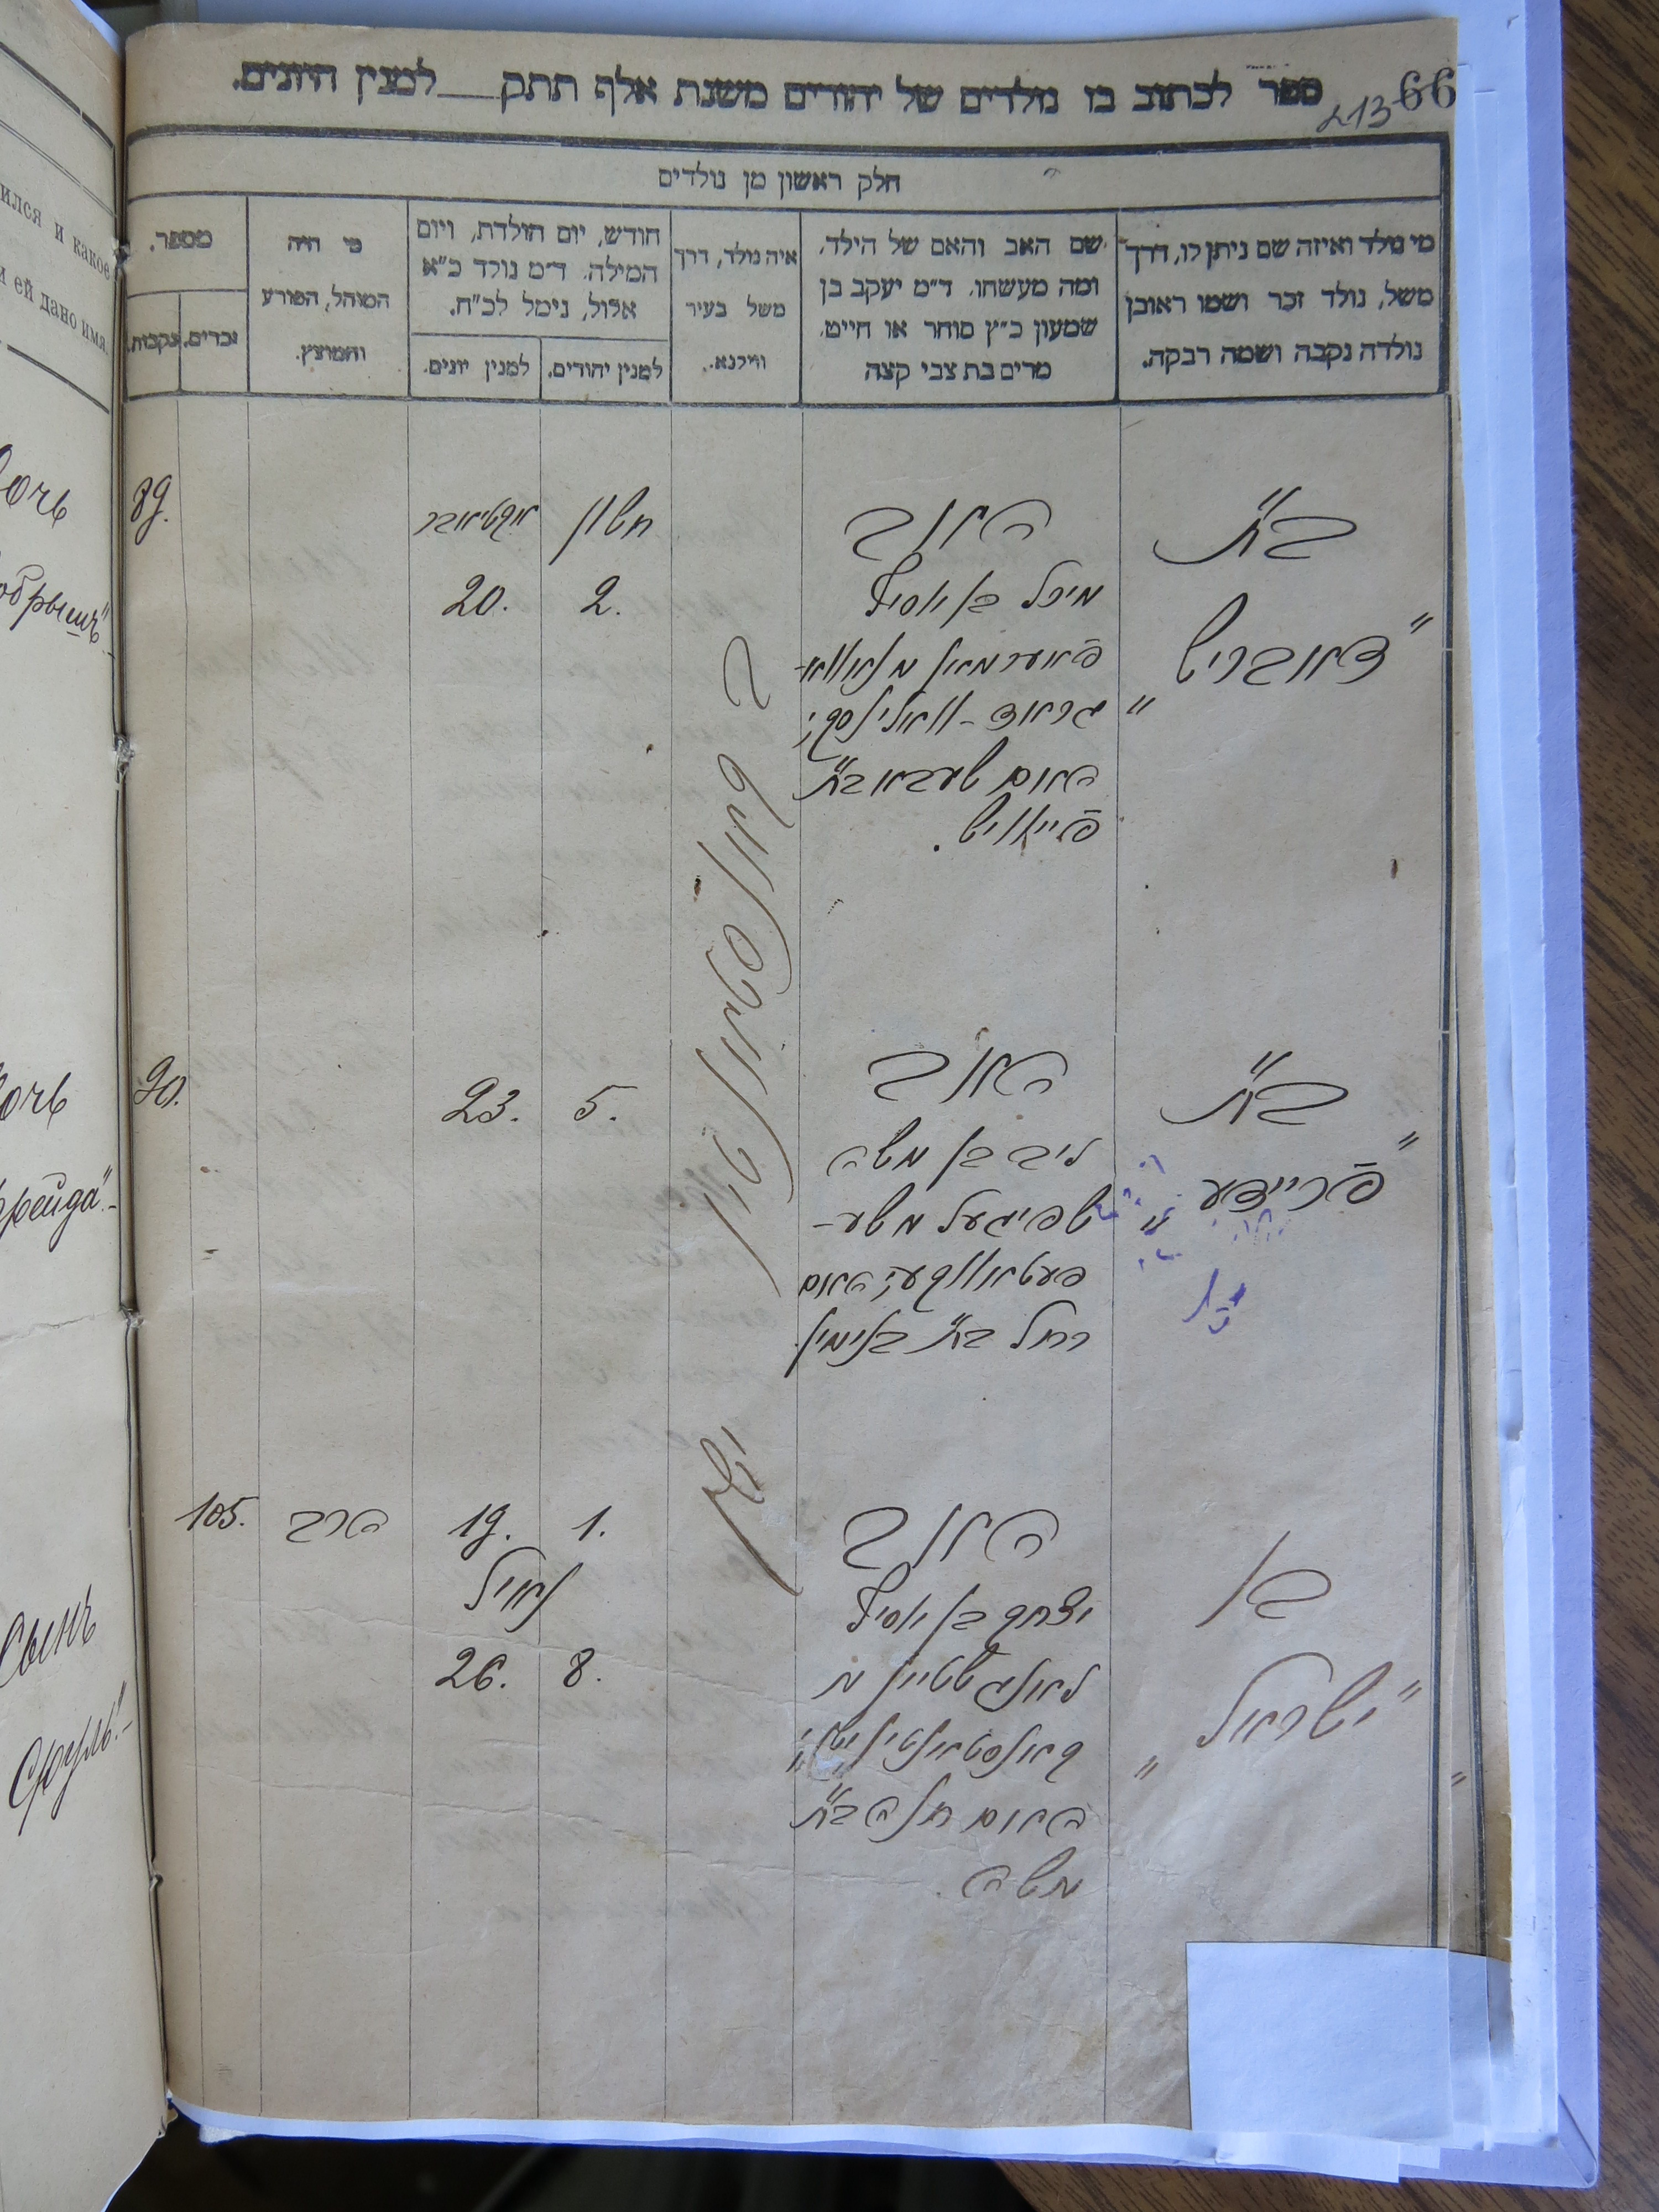 ספר לכתוב בו נולדים של יהודים משנת אלף תתק__למנין היונים.
66
213
חלק ראשון מן נולדים
מי נולד ואיזה שם ניתן לו, דרך
משל, נולד זכר ושמו ראובן
נולדה נקבה ושמה רבקה.
שם האב והאם של הילד,
ומה מעשהו. ד״מ יעקב בן
שמעון כ״ץ סוחר או חייט.
מרים בת צבי קצה
איה נולד, דרך
משל בעיר
ווילנא.
חודש, יום הולדת, ויום
המילה. ד״מ נולד כ״א
אלול, נימל לכ״ח.
למנין יהודים.
למנין יונים.
מי היה
המוהל, הפורע
והמוצץ.
מספר.
זכרים.
נקבות.
בת
"דאבריש"
האב
מיכל בן יוסיף
פוערמאן מנאווא-
גראד-וואלינסק;
האם שעבא בת
פייוויש.
חשון
אקטיאבר
2.
20.
89.
בת
"פריידע"
האב
ליב בן משה
שפיגעל משע-
פעטאווקע; האם
רחל בת בנימין.
5.
23.
90.
בן
"ישראל"
האב
יצחק בן יוסיף
גאלדשטיין מ
קאנסטאנטין ישן;
האם חנה בת
משה.
1.
19.
נימול
8.
26.
הרב
105.
קאנסטאנטין
ישן
ился и какое
и ей дано имя.
очь
обрышъ".-
очь
рейда".-
Сынъ
Сруль".-